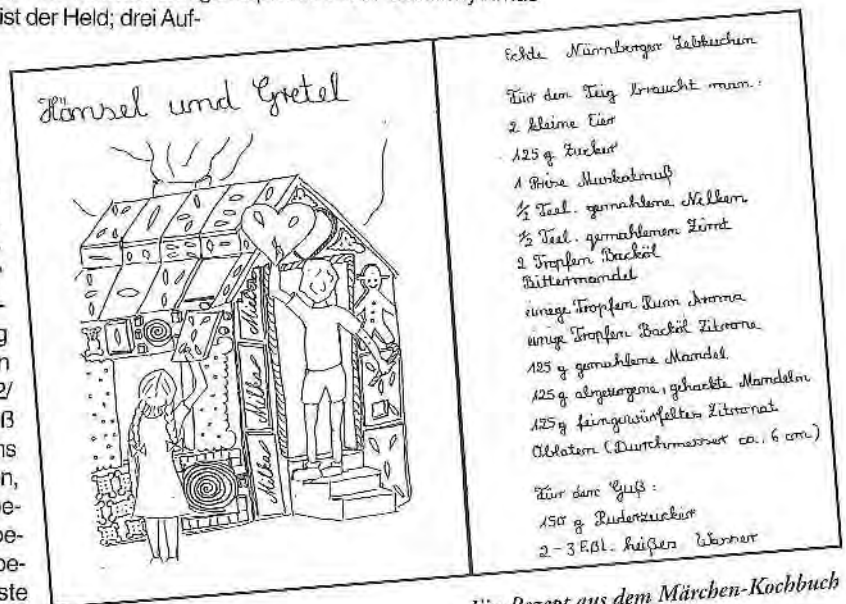 ist der Held; drei Auf-
g
n
2/
ß
ns
n,
be-
be-
be-
ste
Hänsel und Gretel
Milka
Milka
Milka
Echte Nürnberger Lebkuchen
Für den Teig braucht man:
2 kleine Eier
125 g Zucker
1 Prise Muskatnuß
1/2 Teel. gemahlene Nelken
1/2 Teel. gemahlenen Zimt
2 Tropfen Backöl
Bittermandel
einige Tropfen Rum Aroma
einige Tropfen Backöl Zitrone
125 g gemahlene Mandel
125 g abgezogene, gehackte Mandeln
125 g feingewürfeltes Zitronat
Oblaten (Durchmesser ca. 6 cm)
Für den Guß:
150 g Puderzucker
2-3 Eßl. heißes Wasser
Rezept aus dem Märchen-Kochbuch